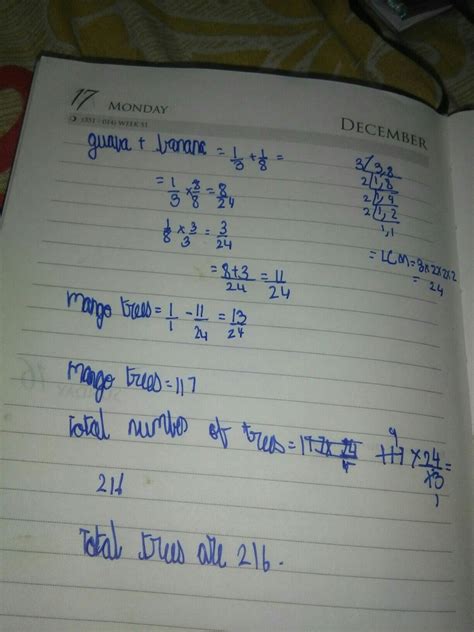 17 MONDAY
(351 - 014) WEEK 51
DECEMBER
guava + banana = 1/3 + 1/8 =
= 1/3 × 8/8 = 8/24
1/8 × 3/3 = 3/24
= 8+3/24 = 11/24
3 | 3,8
2 | 1,8
2 | 1,4
2 | 1,2
1,1
= LCM = 3×2×2×2
= 24
mango trees = 1/1 - 11/24 = 13/24
mango trees = 117
Total number of trees = 117 × 24/13 =
9
1
216
Total trees are 216.